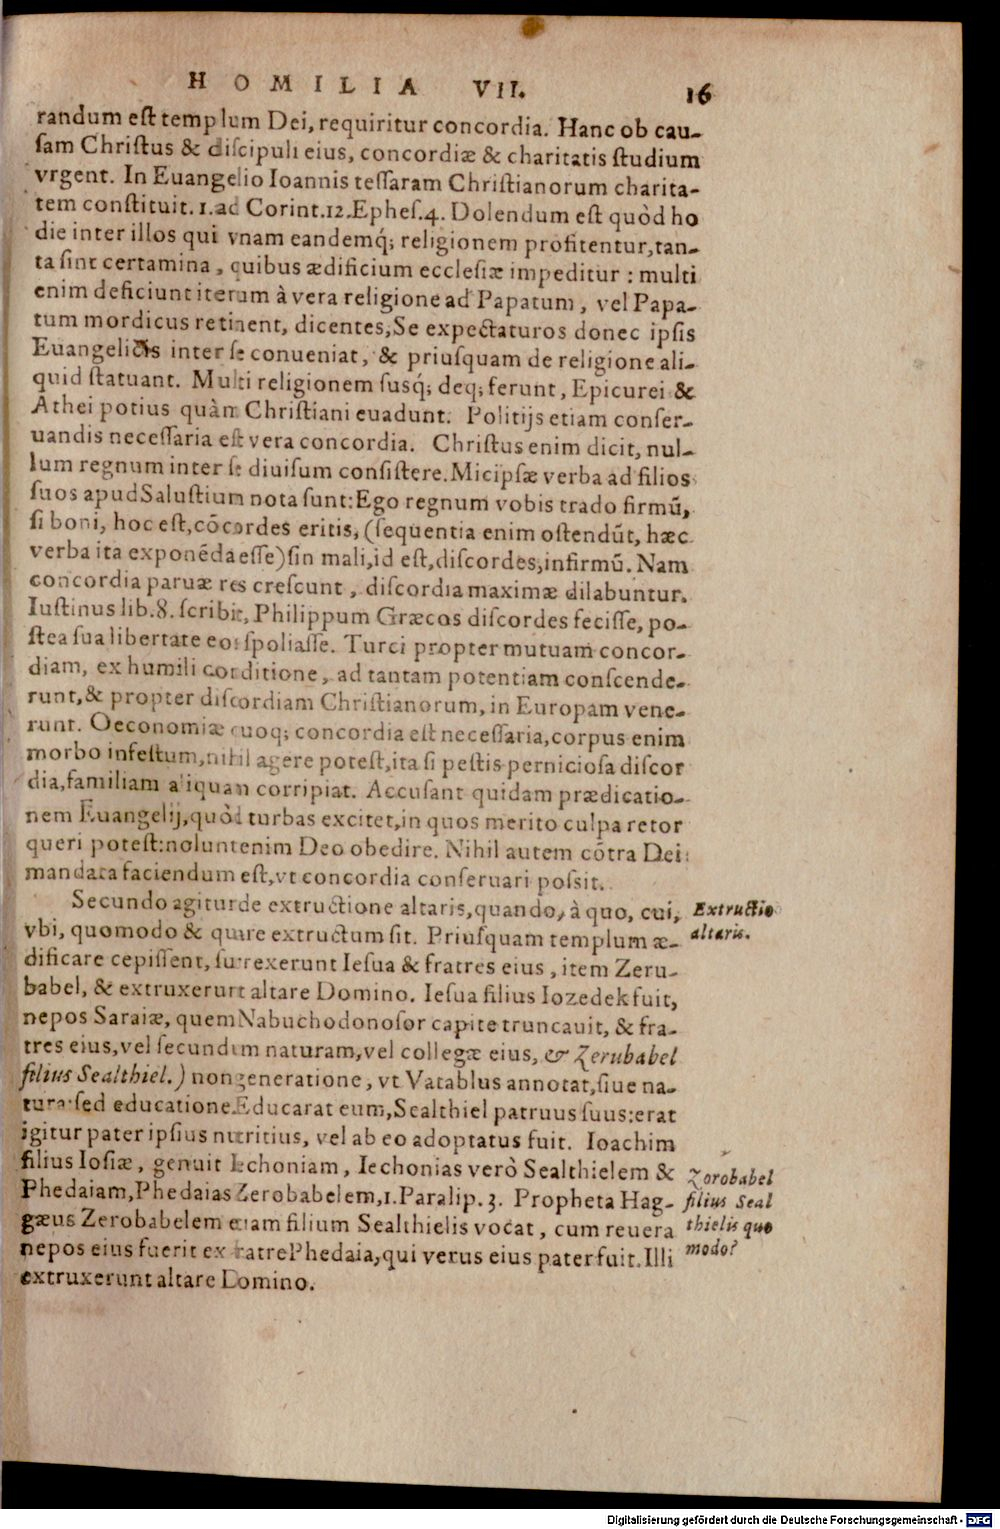 HOMILIA VII. 16
randum est templum Dei, requiritur concordia. Hanc ob cau-
sam Christus & discipuli eius, concordiæ & charitatis studium
vrgent. In Euangelio Ioannis tessaram Christianorum charita-
tem constituit. 1. ad Corint. 12. Ephes. 4. Dolendum est quòd ho
die inter illos qui vnam eandemq́; religionem profitentur, tan-
ta sint certamina, quibus ædificium ecclesiæ impeditur : multi
enim deficiunt iterum à vera religione ad Papatum, vel Papa-
tum mordicus retinent, dicentes, Se expectaturos donec ipsis
Euangelicis inter se conueniat, & priusquam de religione ali-
quid statuant. Multi religionem susq́; deq; ferunt, Epicurei &
Athei potius quàm Christiani euadunt. Politijs etiam conser-
uandis necessaria est vera concordia. Christus enim dicit, nul-
lum regnum inter se diuisum consistere. Micipsæ verba ad filios
suos apud Salustium nota sunt: Ego regnum vobis trado firmū,
si boni, hoc est, cōcordes eritis, (sequentia enim ostendūt, hæc
verba ita exponēda esse) sin mali, id est, discordes, infirmū. Nam
concordia paruæ res crescunt, discordia maximæ dilabuntur.
Iustinus lib. 8. scribit, Philippum Græcos discordes fecisse, po-
stea sua libertate eos spoliasse. Turci propter mutuam concor-
diam, ex humili conditione, ad tantam potentiam conscende-
runt, & propter discordiam Christianorum, in Europam vene-
runt. Oeconomiæ quoq; concordia est necessaria, corpus enim
morbo infestum, nihil agere potest, ita si pestis perniciosa discor
dia, familiam aliquam corripiat. Accusant quidam prædicatio-
nem Euangelij, quòd turbas excitet, in quos merito culpa retor
queri potest: nolunt enim Deo obedire. Nihil autem cōtra Dei
mandata faciendum est, vt concordia conseruari possit.
Secundo agitur de extructione altaris, quando, à quo, cui, Extructio
vbi, quomodo & quare extructum sit. Priusquam templum æ- altaris.
dificare cepissent, surrexerunt Iesua & fratres eius, item Zeru-
babel, & extruxerunt altare Domino. Iesua filius Iozedek fuit,
nepos Saraiæ, quem Nabuchodonosor capite truncauit, & fra-
tres eius, vel secundum naturam, vel collegæ eius, & Zerubabel
filius Sealthiel.) non generatione, vt Vatablus annotat, siue na-
tura sed educatione. Educarat eum, Sealthiel patruus suus: erat
igitur pater ipsius nutritius, vel ab eo adoptatus fuit. Ioachim
filius Iosiæ, genuit Iechoniam, Iechonias verò Sealthielem & Zorobabel
Phedaiam, Phedaias Zerobabelem, 1. Paralip. 3. Propheta Hag- filius Seal
gæus Zerobabelem etiam filium Sealthielis vocat, cum reuera thielis quo
nepos eius fuerit ex fratre Phedaia, qui verus eius pater fuit. Illi modo?
extruxerunt altare Domino.
Digitalisierung gefördert durch die Deutsche Forschungsgemeinschaft - DFG